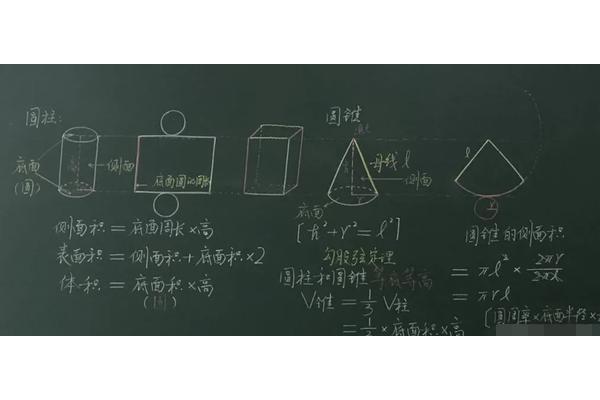 圆柱:
底面
(圆)
侧面
底面圆的周长
圆锥
母线 l
侧面
底面
l
r
侧面积 = 底面周长 × 高
表面积 = 侧面积 + 底面积 × 2
体积 = 底面积 × 高
(圆)
[h² + r² = l²]
勾股弦定理
圆柱和圆锥等底等高
V锥 = 1/3 V柱
= 1/3 × 底面积 × 高
圆锥的侧面积
= πl² × 2πr/2πl
= πrl
[圆周率 × 底面半径 ×